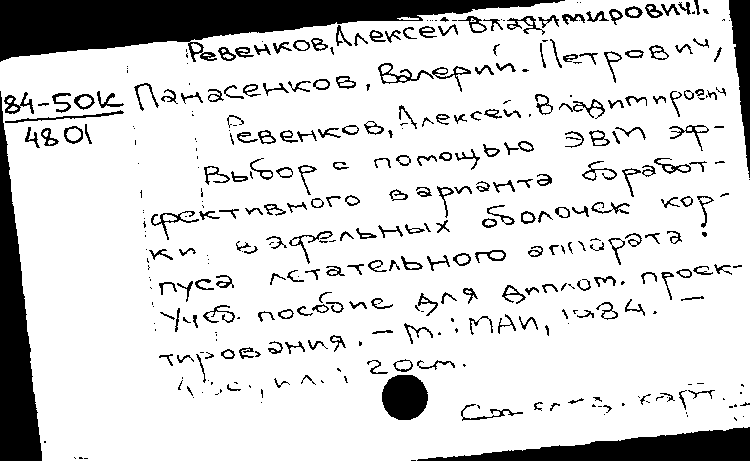 Ревенков, Алексей Владимирович.
84-50К Панасенков, Валерий. Петрович,
4801 Ревенков, Алексей. Владимирович
Выбор с помощью ЭВМ эф-
фективного варианта обработ-
ки вафельных оболочек кор-
пуса летательного аппарата:
Учеб. пособие для диплом. проек-
тирования. – М.: МАИ, 1984. –
ил.; 20см.
карт.